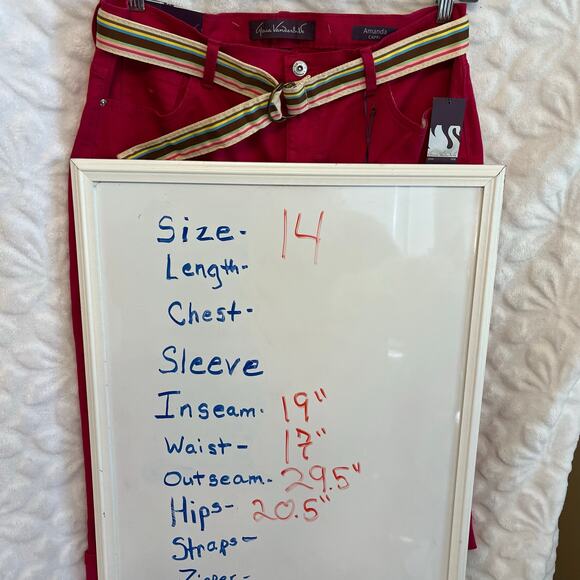 Gloria Vanderbilt
Amanda
CAPRI
Size- 14
Length-
Chest-
Sleeve
Inseam. 19"
Waist- 17"
Outseam. 29.5"
Hips- 20.5"
Straps-
Zipper-